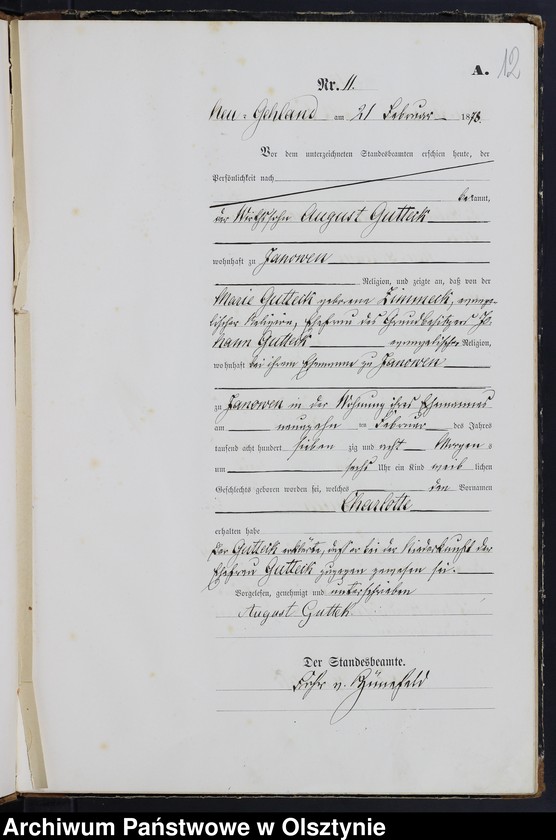 A.
12
Nr. 11.
Neu-Gehland am 21 Februar 1878.
Vor dem unterzeichneten Standesbeamten erschien heute, der
Persönlichkeit nach
bekannt,
der Wirthssohn August Gutteck
wohnhaft zu Janowen
Religion, und zeigte an, daß von der
Marie Gutteck geborene Zimmeck, evange-
lischer Religion, Ehefrau des Grundbesitzers Jo-
hann Gutteck evangelischer Religion,
wohnhaft bei ihrem Ehemanne zu Janowen
zu Janowen in der Wohnung ihres Ehemannes
am neunzehn ten Februar des Jahres
tausend acht hundert sieben zig und acht Morgens
um sechs Uhr ein Kind weib lichen
Geschlechts geboren worden sei, welches den Vornamen
Charlotte
erhalten habe
Der Gutteck erklärte, daß er bei der Niederkunft der
Ehefrau Gutteck zugegen gewesen sei.
Vorgelesen, genehmigt und unterschrieben
August Guttek
Der Standesbeamte.
v. Hünefeld
Archiwum Państwowe w Olsztynie